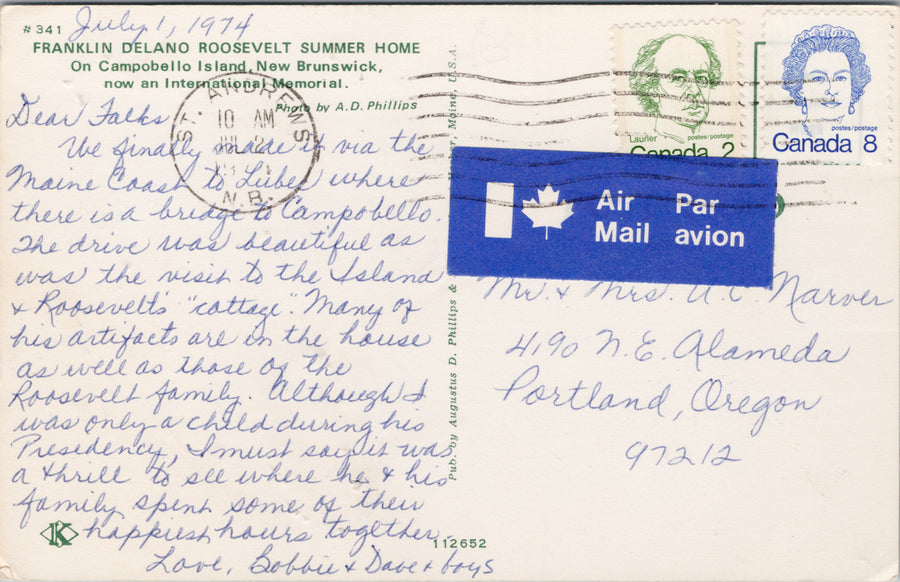 July 1, 1974
#341
FRANKLIN DELANO ROOSEVELT SUMMER HOME
On Campobello Island, New Brunswick,
now an International Memorial.
Photo by A.D. Phillips
Dear Folks,
We finally made it via the
Maine Coast to Lubec where
there is a bridge to Campobello.
The drive was beautiful as
was the visit to the Island
& Roosevelt's "cottage". Many of
his artifacts are in the house
as well as those of the
Roosevelt family. Although I
was only a child during his
Presidency, I must say it was
a thrill to see where he & his
family spent some of their
happiest hours together.
Love, Bobbie & Dave & boys
K
112652
Pub. by Augustus D. Phillips &
Maine, U.S.A.
ST. ANDREWS
10 AM
N.B.
Laurier
postes/postage
Canada 2
postes/postage
Canada 8
Air Par
Mail avion
Mr. & Mrs. A.C. Narver
4190 N.E. Alameda
Portland, Oregon
97212